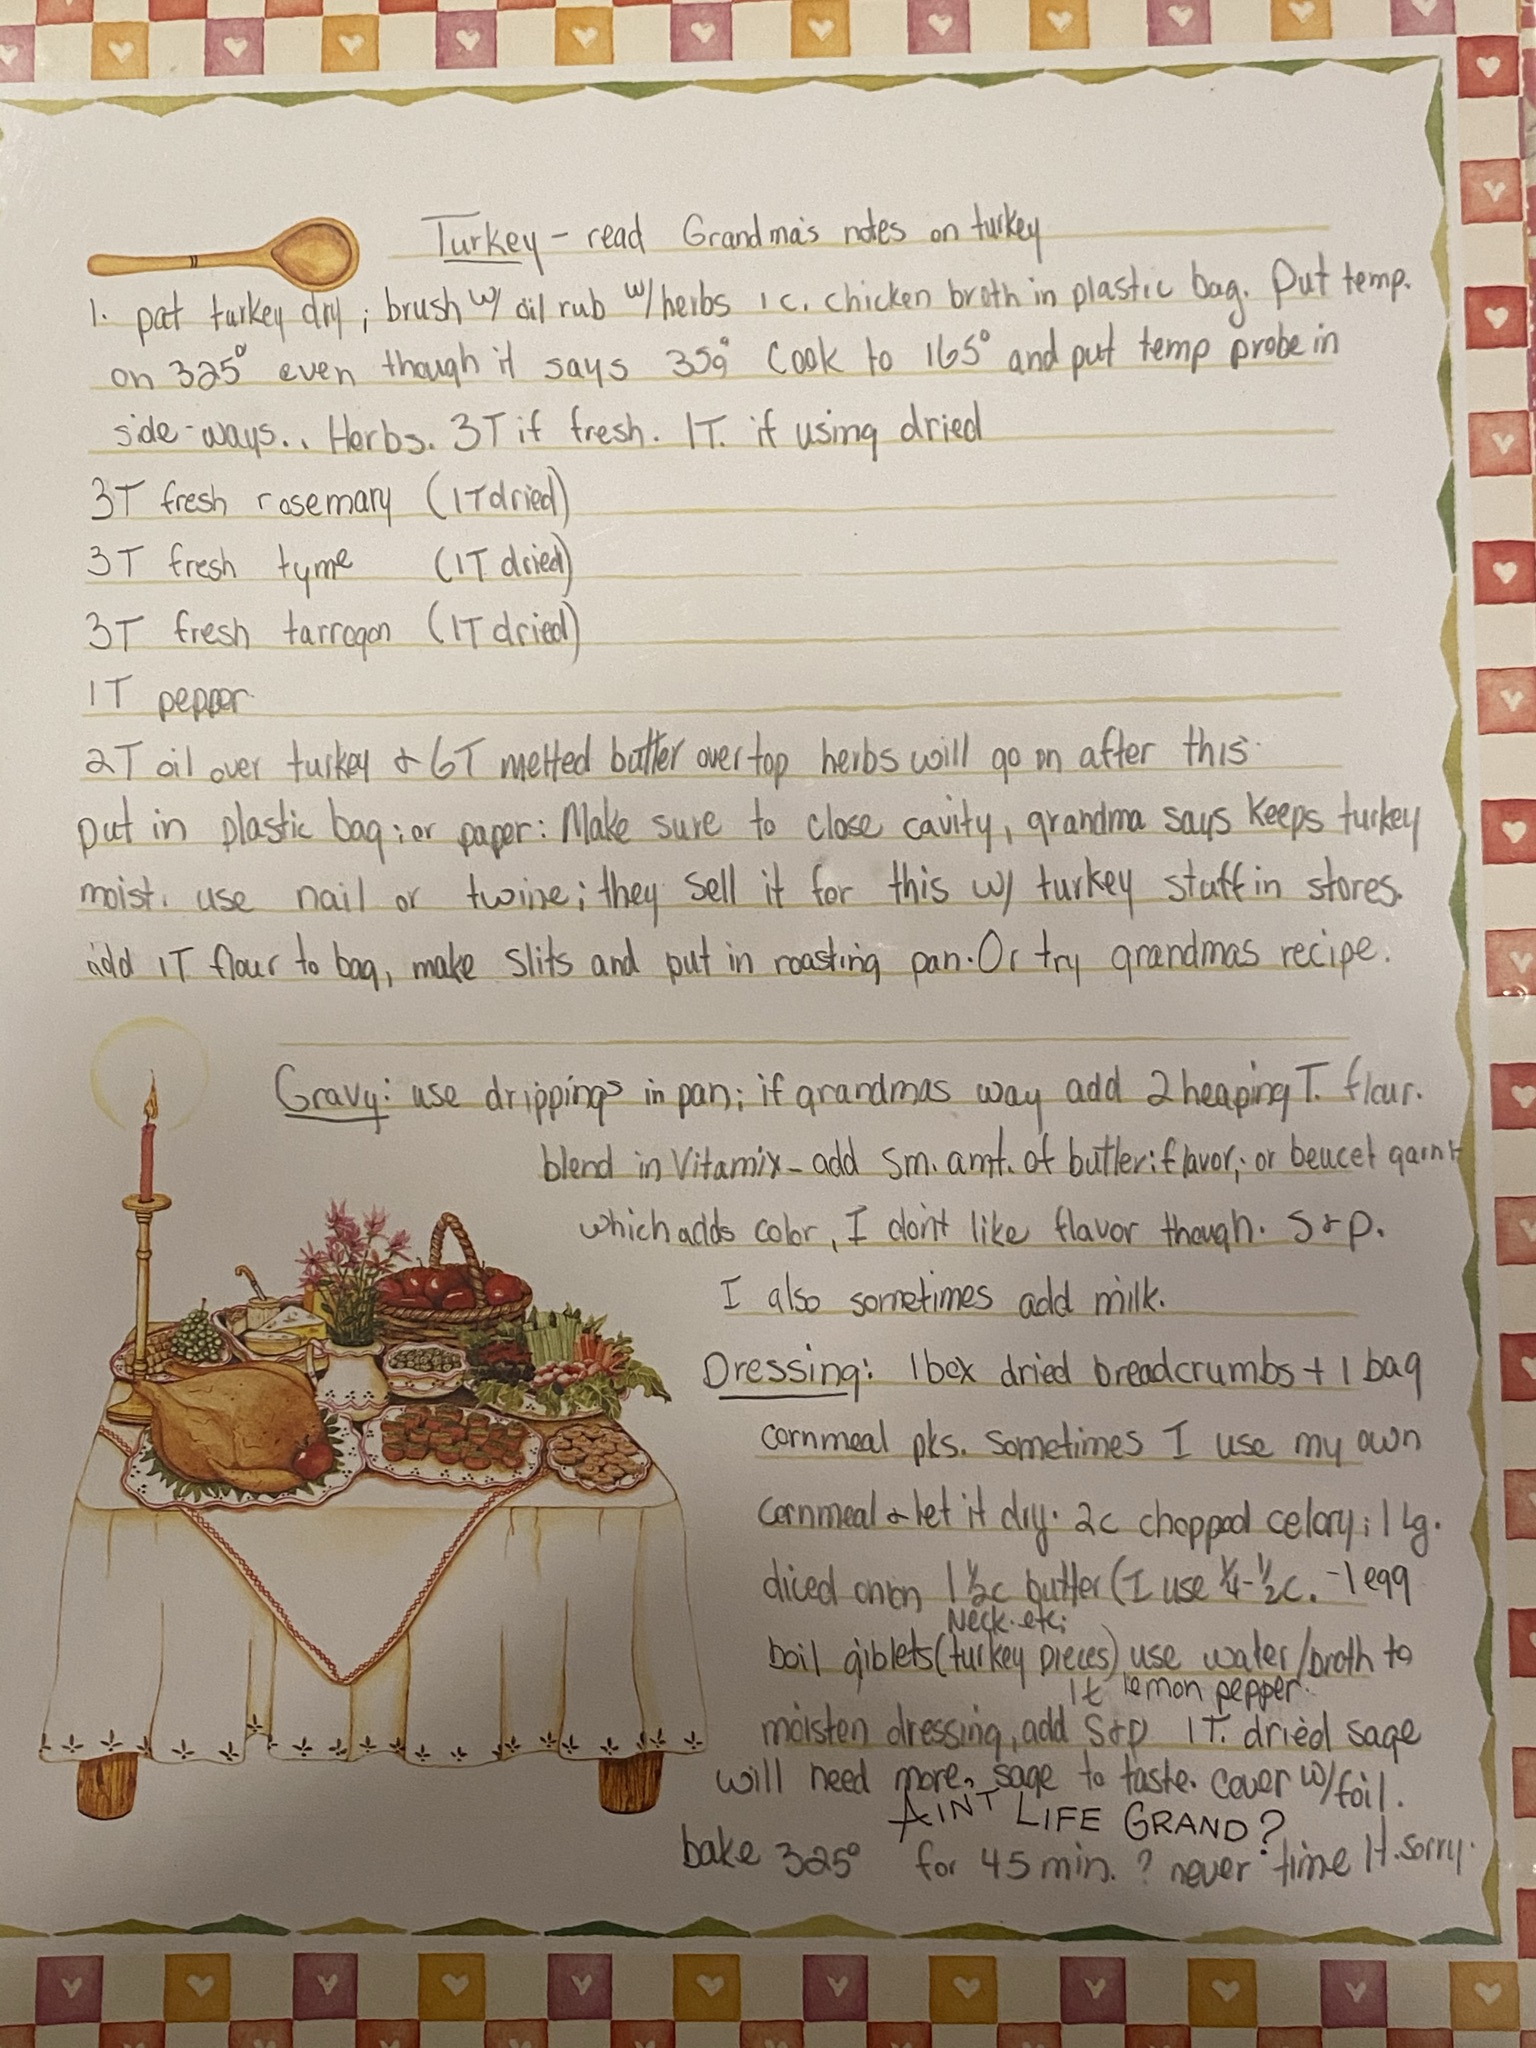 Turkey - read Grandma's notes on turkey
1. pat turkey dry; brush w/ oil rub w/herbs 1 c. chicken broth in plastic bag. Put temp.
on 325° even though it says 350° Cook to 165° and put temp probe in
side-ways.. Herbs. 3T if fresh. 1T. if using dried
3T fresh rosemary (1T dried)
3T fresh tyme (1T dried)
3T fresh tarragon (1T dried)
1T pepper
2T oil over turkey & 6T melted butter over top herbs will go on after this
put in plastic bag; or paper: Make sure to close cavity, grandma says keeps turkey
moist. use nail or twine; they sell it for this w/ turkey stuff in stores.
add 1T flour to bag, make slits and put in roasting pan. Or try grandmas recipe.
Gravy: use drippings in pan; if grandmas way add 2 heaping T. flour.
blend in Vitamix - add sm. amt. of butter: flavor; or beucet garni
which adds color, I don't like flavor though. S & P.
I also sometimes add milk.
Dressing: 1 box dried breadcrumbs + 1 bag
cornmeal pks. sometimes I use my own
cornmeal & let it dry. 2c chopped celery; 1 Lg.
diced onion 1 1/2c butter (I use 1/4-1/2c. -1 egg
Neck. etc;
boil giblets (turkey pieces) use water/broth to
1t lemon pepper.
moisten dressing, add S&P 1T. dried sage
will need more, sage to taste. cover w/foil.
AINT LIFE GRAND?
bake 325° for 45 min. ? never time it. sorry.